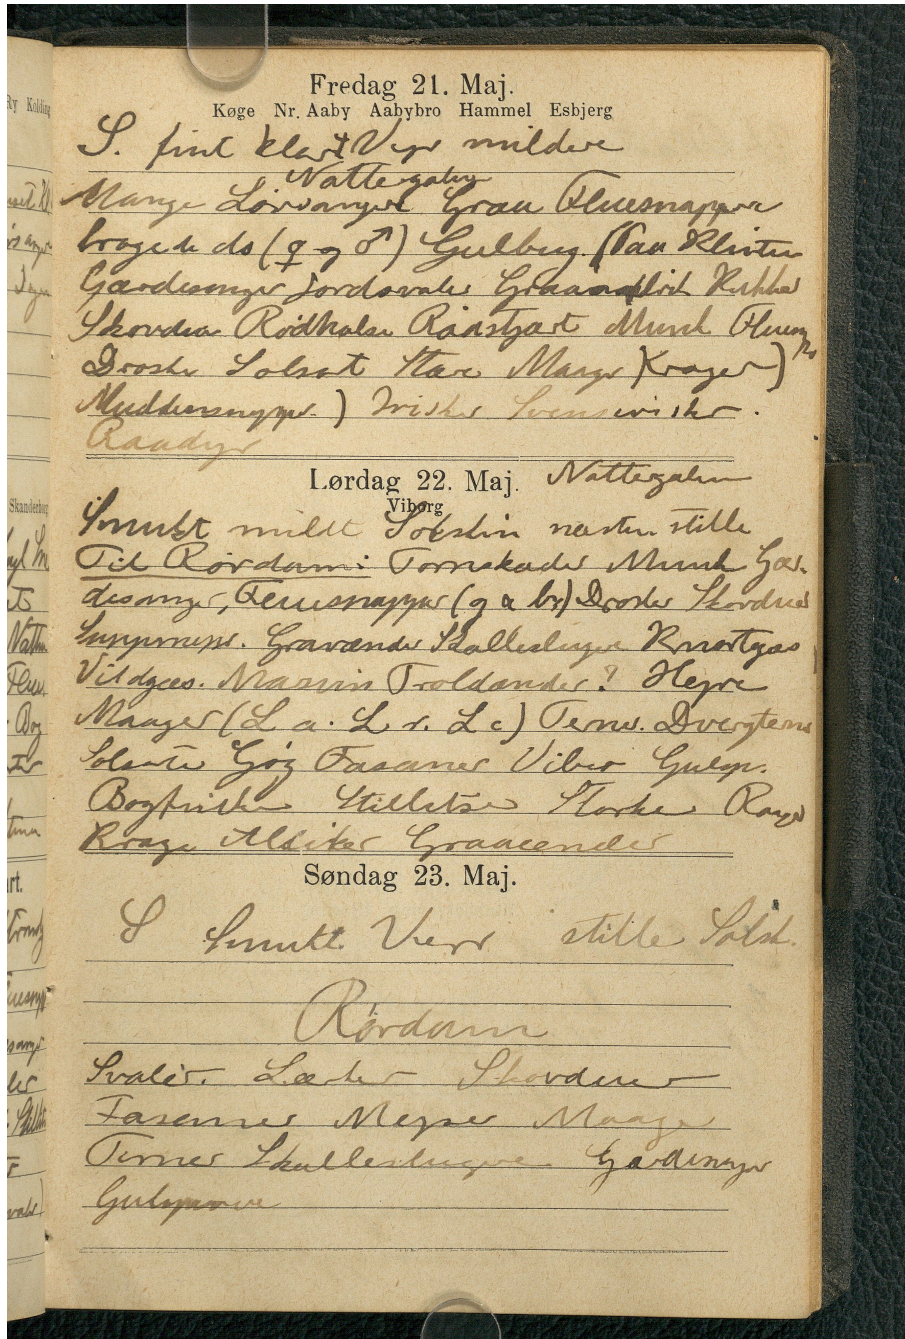 Fredag 21. Maj.
Køge Nr. Aaby Aabybro Hammel Esbjerg
S. fint klart Vejr mildere
Nattergalen
Mange Løvsanger Graa Fluesnapper
brogede do (♀ og ♂) Gulbug. (Paa Klinten
Gærdesanger Jordsvaler Graa Kukker
Skovduer Rødhalse Rødstjært Munk
Drosler Solsort Stære Maager (Krager)
Irisker Svenskirisker.
Raadyr
Lørdag 22. Maj. Nattergalen
Viborg
Smukt mildt Solskin næsten stille
Til Rørdam: Tornskader Munk Gær-
desanger, Fluesnapper (g & br) Drosler Skovduer
Gravænder Skalleslugere Knortgæs
Vildgæs. Troldænder? Hejre
Maager (L a. L r. L c) Terne. Dværgterne
Solsorte Gøg Fasaner Viber Gulsp.
Bogfinke Stillitser Storke Raager
Krage Alliker Graaænder
Søndag 23. Maj.
S Smukt Vejr stille Solsk.
Rørdam
Svaler. Lærker Skovduer
Fasaner Mejser Maage
Terner Skalleslugere Gærdesanger
Gulspurve